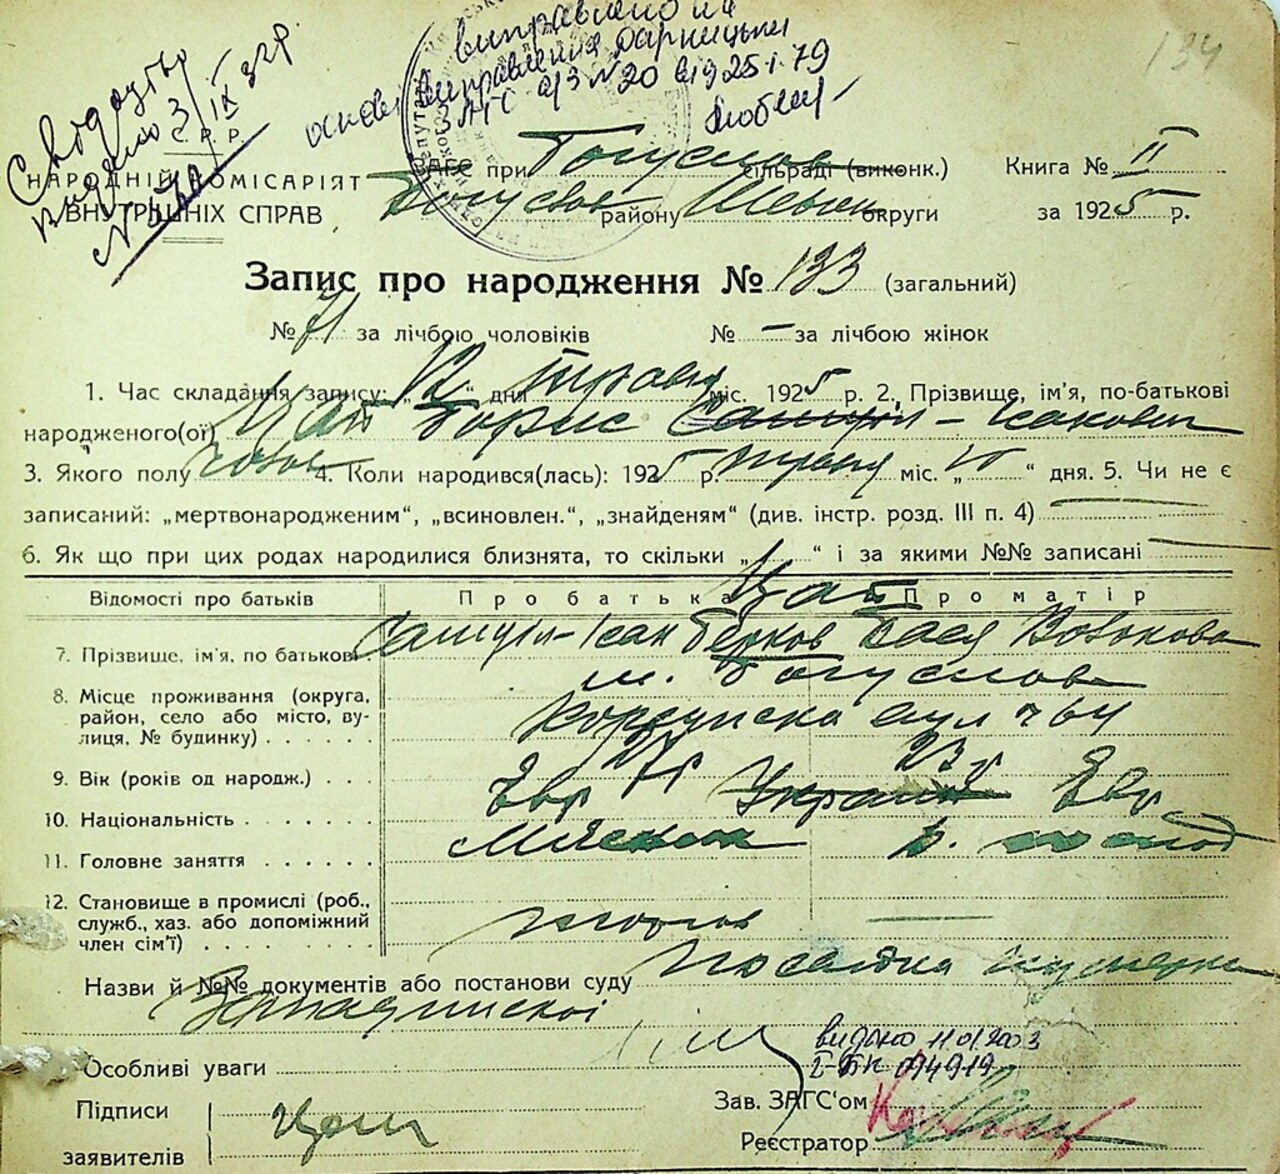 134
Свідоцтво
видано 3/IX 32р.
виправлено на
основі виправлення Дарницьким
ЗАГС а/з №20 від 25.I.79
С. Р. Р.
НАРОДНІЙ КОМІСАРІЯТ
ВНУТРІШНІХ СПРАВ
ЗАГС при Богуслав сільраді (виконк.)
Богуслав району Шевч округи
Книга № II
за 1925 р.
Запис про народження № 133 (загальний)
№ 71 за лічбою чоловіків № – за лічбою жінок
1. Час складання запису: „12“ дня травня міс. 1925 р. 2. Прізвище, ім'я, по-батькові
народженого(ої) Цап Борис Самуїл-Ісакович
3. Якого полу чолов 4. Коли народився(лась): 1925 р. травня міс. „ “ дня. 5. Чи не є
записаний: „мертвонародженим“, „всиновлен.“, „знайденям“ (див. інстр. розд. III п. 4)
6. Як що при цих родах народилися близнята, то скільки „ “ і за якими №№ записані
Відомості про батьків Про батька Про матір
Цап
7. Прізвище, ім'я, по батькові Самуїл-Ісак Берков Бася Вовкова
8. Місце проживання (округа, район, село або місто, вулиця, № будинку) м. Богуслав
Корсунска вул ч 64
9. Вік (років од народж.) 27р 23р
10. Національність Евр Україн Евр
11. Головне заняття
12. Становище в промислі (роб., служб., хаз. або допоміжний член сім'ї)
Назви й №№ документів або постанови суду Посвідка
Особливі уваги
видано 11.01.2003
I-БК 074919
Підписи
заявителів Цап
Зав. ЗАГС'ом
Реєстратор